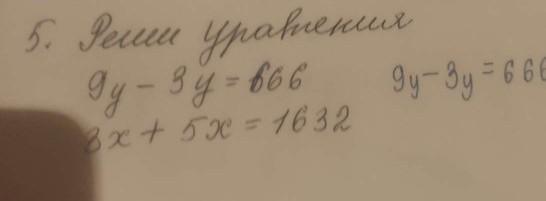 5. Реши уравнения
9y - 3y = 666
9y - 3y = 666
3x + 5x = 1632